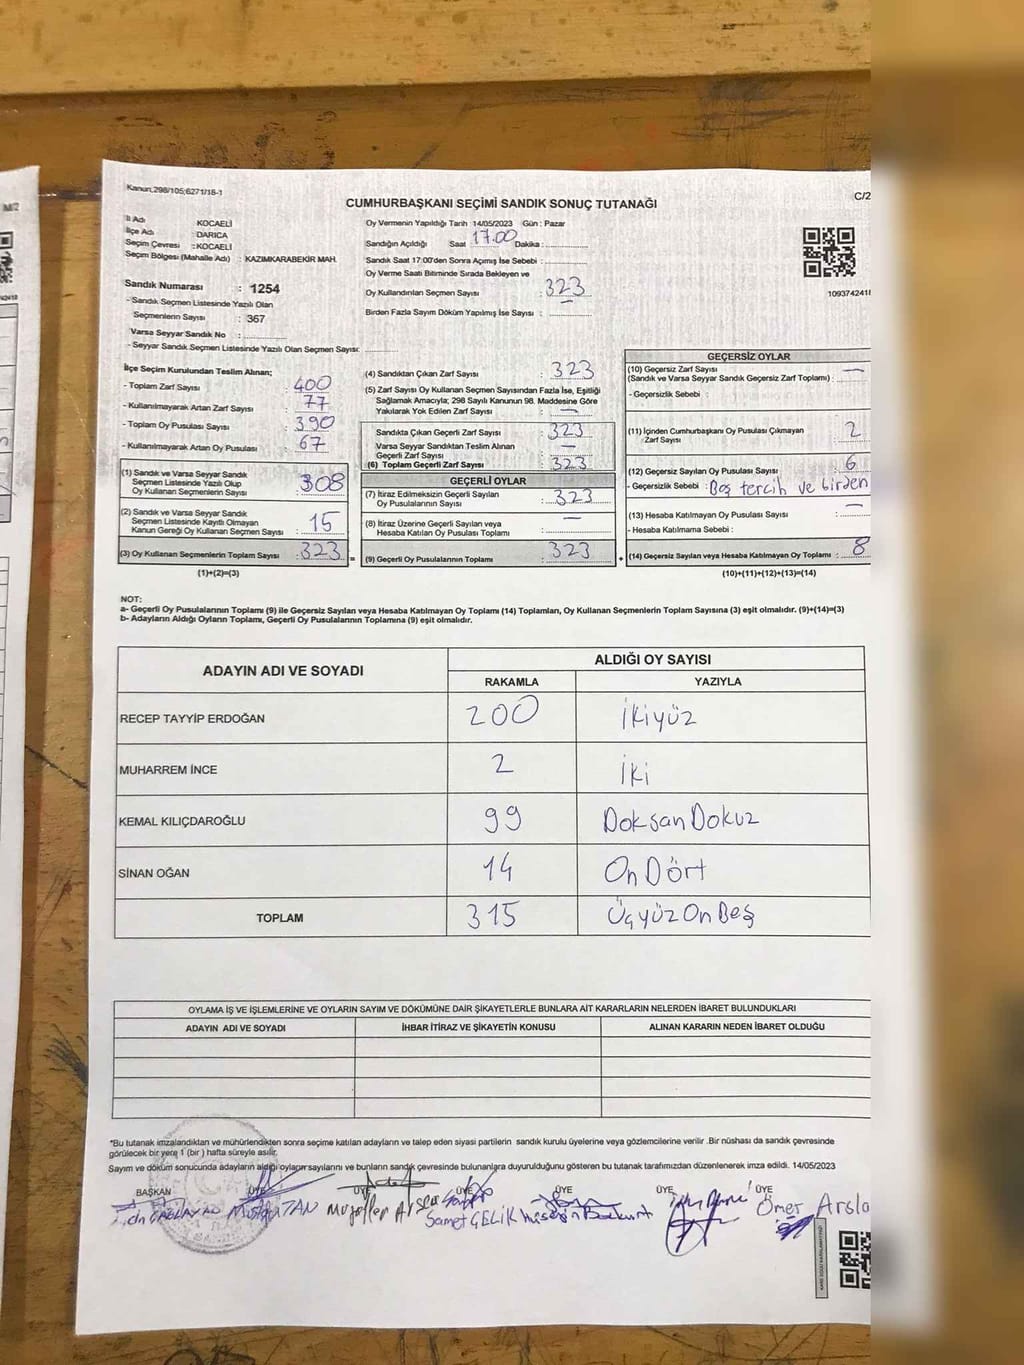 Kanun;298/105;6271/18-1
C/2
CUMHURBAŞKANI SEÇİMİ SANDIK SONUÇ TUTANAĞI
İl Adı : KOCAELİ
İlçe Adı : DARICA
Seçim Çevresi : KOCAELİ
Seçim Bölgesi (Mahalle Adı) : KAZIMKARABEKİR MAH.
Sandık Numarası : 1254
- Sandık Seçmen Listesinde Yazılı Olan
Seçmenlerin Sayısı : 367
Varsa Seyyar Sandık No :
- Seyyar Sandık Seçmen Listesinde Yazılı Olan Seçmen Sayısı:
Oy Vermenin Yapıldığı Tarih 14/05/2023 Gün : Pazar
Sandığın Açıldığı Saat 17.00 Dakika :
Sandık Saat 17:00'den Sonra Açımış İse Sebebi :
Oy Verme Saati Bitiminde Sırada Bekleyen ve
Oy Kullandırılan Seçmen Sayısı : 323
Birden Fazla Sayım Döküm Yapılmış İse Sayısı :
109374241
M/2
İlçe Seçim Kurulundan Teslim Alınan;
- Toplam Zarf Sayısı : 400
- Kullanılmayarak Artan Zarf Sayısı : 77
- Toplam Oy Pusulası Sayısı : 390
- Kullanılmayarak Artan Oy Pusulası : 67
(1) Sandık ve Varsa Seyyar Sandık
Seçmen Listesinde Yazılı Olup
Oy Kullanan Seçmenlerin Sayısı : 308
(2) Sandık ve Varsa Seyyar Sandık
Seçmen Listesinde Kayıtlı Olmayan
Kanun Gereği Oy Kullanan Seçmen Sayısı : 15
(3) Oy Kullanan Seçmenlerin Toplam Sayısı : 323 =
(1)+(2)=(3)
(4) Sandıktan Çıkan Zarf Sayısı : 323
(5) Zarf Sayısı Oy Kullanan Seçmen Sayısından Fazla İse, Eşitliği
Sağlamak Amacıyla; 298 Sayılı Kanunun 98. Maddesine Göre
Yakılarak Yok Edilen Zarf Sayısı : —
Sandıkta Çıkan Geçerli Zarf Sayısı : 323
Varsa Seyyar Sandıktan Teslim Alınan
Geçerli Zarf Sayısı : —
(6) Toplam Geçerli Zarf Sayısı : 323
GEÇERLİ OYLAR
(7) İtiraz Edilmeksizin Geçerli Sayılan
Oy Pusulalarının Sayısı : 323
(8) İtiraz Üzerine Geçerli Sayılan veya
Hesaba Katılan Oy Pusulası Toplamı : —
(9) Geçerli Oy Pusulalarının Toplamı : 323 +
GEÇERSİZ OYLAR
(10) Geçersiz Zarf Sayısı
(Sandık ve Varsa Seyyar Sandık Geçersiz Zarf Toplamı) : —
- Geçersizlik Sebebi :
(11) İçinden Cumhurbaşkanı Oy Pusulası Çıkmayan
Zarf Sayısı : 2
(12) Geçersiz Sayılan Oy Pusulası Sayısı : 6
- Geçersizlik Sebebi : Boş tercih ve birden
(13) Hesaba Katılmayan Oy Pusulası Sayısı : —
- Hesaba Katılmama Sebebi :
(14) Geçersiz Sayılan veya Hesaba Katılmayan Oy Toplamı : 8
(10)+(11)+(12)+(13)=(14)
NOT:
a- Geçerli Oy Pusulalarının Toplamı (9) ile Geçersiz Sayılan veya Hesaba Katılmayan Oy Toplamı (14) Toplamları, Oy Kullanan Seçmenlerin Toplam Sayısına (3) eşit olmalıdır. (9)+(14)=(3)
b- Adayların Aldığı Oyların Toplamı, Geçerli Oy Pusulalarının Toplamına (9) eşit olmalıdır.
ADAYIN ADI VE SOYADI
ALDIĞI OY SAYISI
RAKAMLA YAZIYLA
RECEP TAYYİP ERDOĞAN 200 İkiyüz
MUHARREM İNCE 2 İki
KEMAL KILIÇDAROĞLU 99 Doksan Dokuz
SİNAN OĞAN 14 On Dört
TOPLAM 315 Üçyüz On Beş
OYLAMA İŞ VE İŞLEMLERİNE VE OYLARIN SAYIM VE DÖKÜMÜNE DAİR ŞİKAYETLERLE BUNLARA AİT KARARLARIN NELERDEN İBARET BULUNDUKLARI
ADAYIN ADI VE SOYADI İHBAR İTİRAZ VE ŞİKAYETİN KONUSU ALINAN KARARIN NEDEN İBARET OLDUĞU
*Bu tutanak imzalandıktan ve mühürlendikten sonra seçime katılan adayların ve talep eden siyasi partilerin sandık kurulu üyelerine veya gözlemcilerine verilir .Bir nüshası da sandık çevresinde
görülecek bir yere 1 (bir ) hafta süreyle asılır.
Sayım ve döküm sonucunda adayların aldığı oyların sayılarını ve bunların sandık çevresinde bulunanlara duyurulduğunu gösteren bu tutanak tarafımızdan düzenlenerek imza edildi. 14/05/2023
BAŞKAN ÜYE ÜYE ÜYE ÜYE ÜYE ÜYE
Samet ÇELİK Ömer Arslo